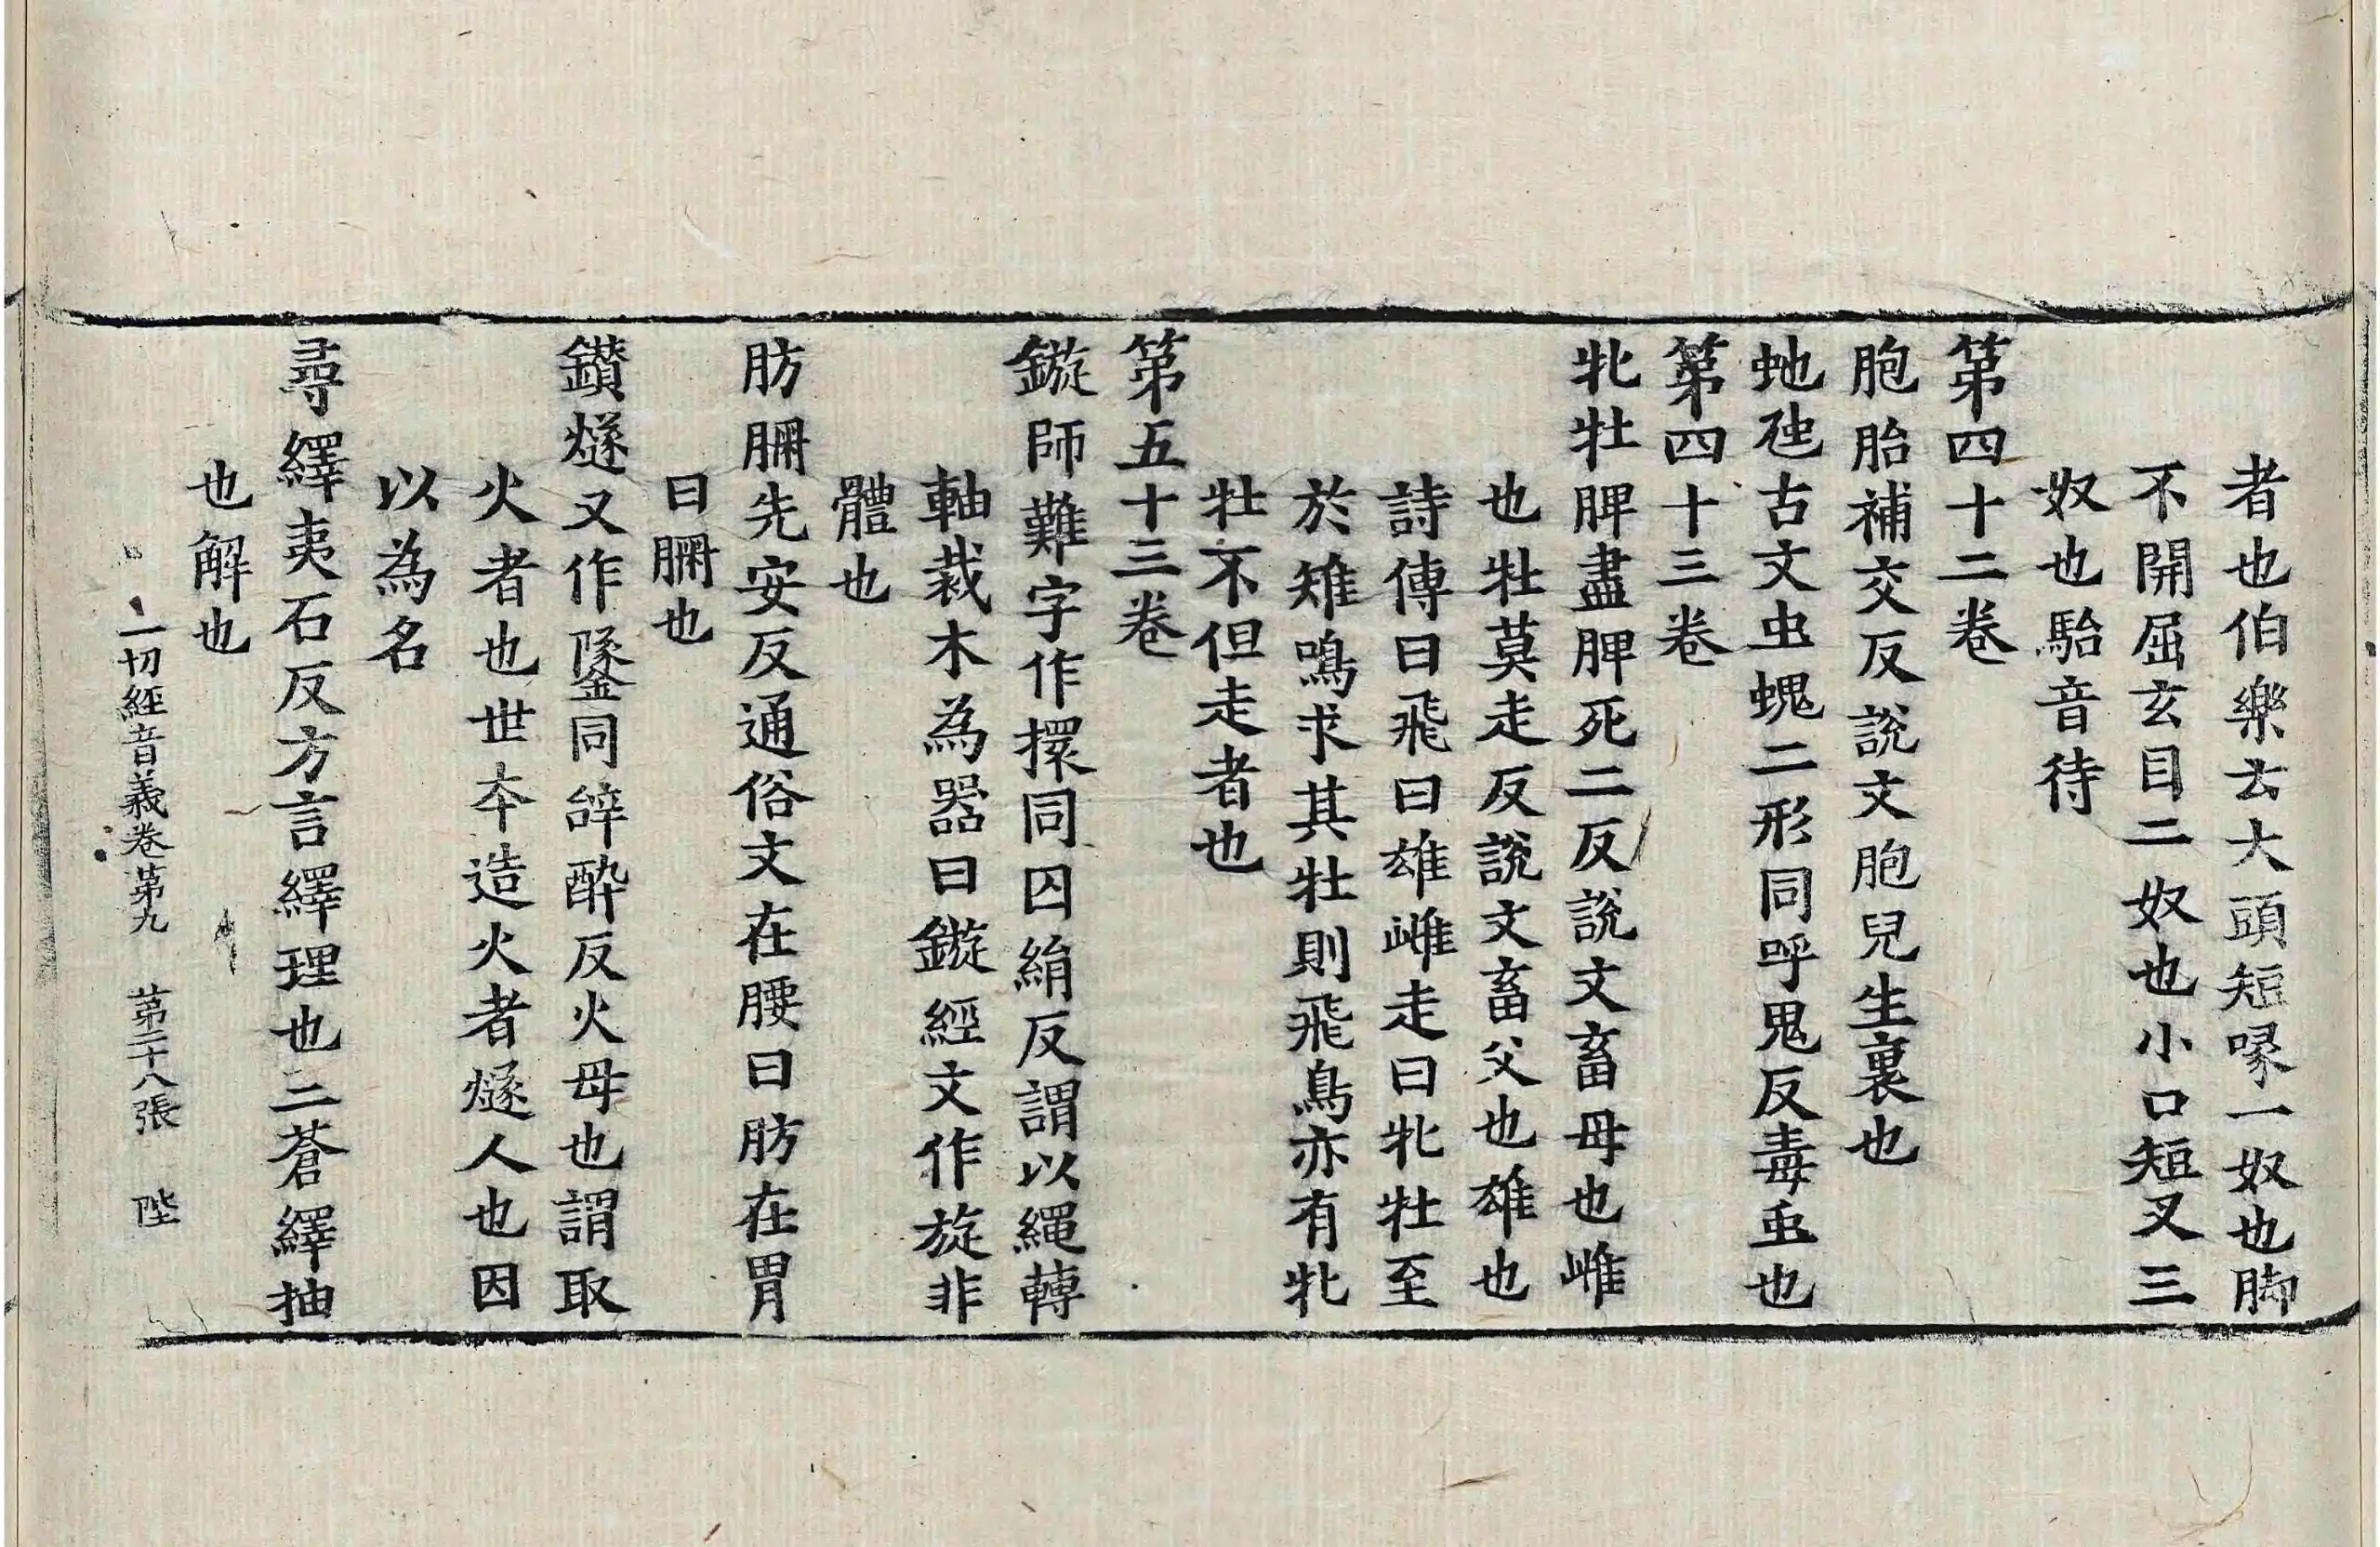 者也伯樂云大頭短喙一奴也脚
不開屈玄目二奴也小口短叉三
奴也駘音待
第四十二卷
胞胎補交反說文胞兒生裏也
虵虺古文虫螝二形同呼鬼反毒䖝也
第四十三卷
牝牡脾盡脾死二反說文畜母也雌
也牡莫走反說文畜父也雄也
詩傳曰飛曰雄雌走曰牝牡至
於雉鳴求其牡則飛鳥亦有牝
牡不但走者也
第五十三卷
鏇師難字作摆同囚絹反謂以繩轉
軸裁木為器曰鏇經文作旋非
體也
肪𦙫先安反通俗文在腰曰肪在胃
曰𦙫也
鑚燧又作鐆同辝酔反火母也謂取
火者也世夲造火者燧人也因
以為名
尋繹夷石反方言繹理也三蒼繹抽
也解也
一切經音義卷第九 第二十八張 陛